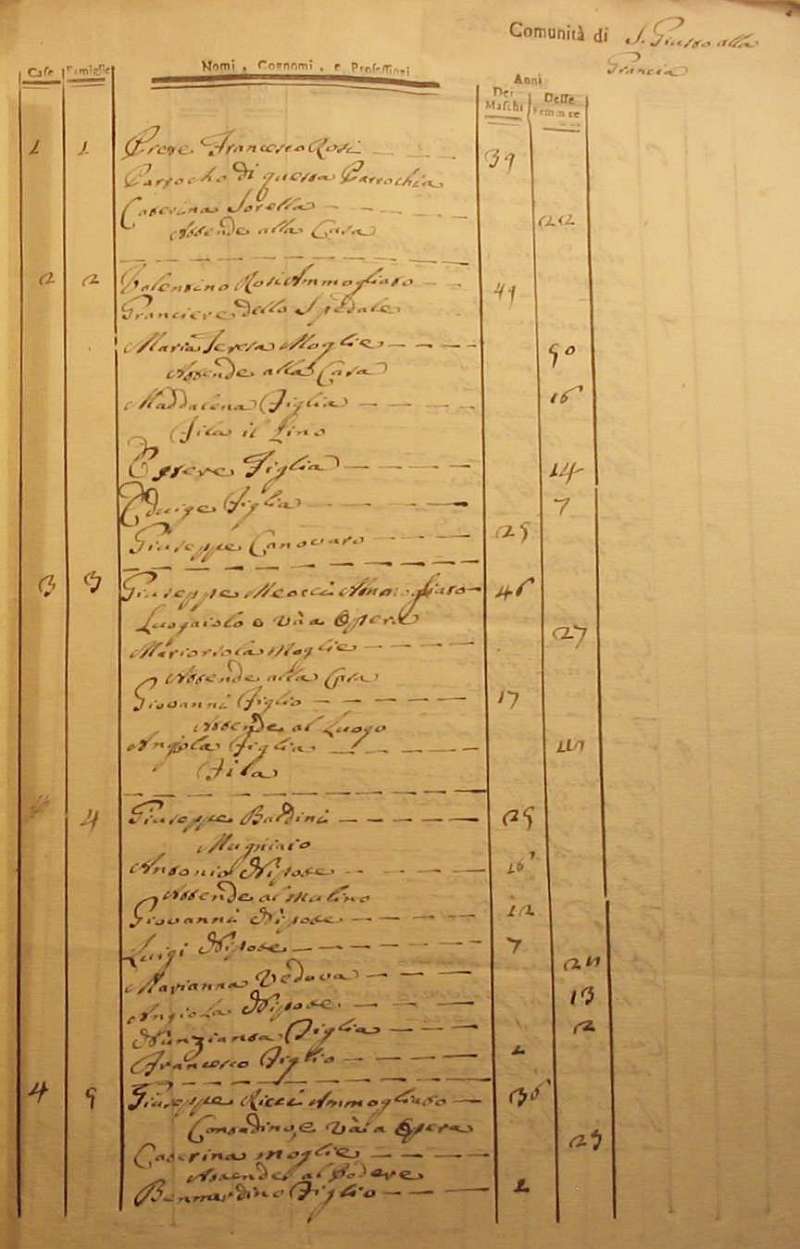 Comunità di S. Giusto alla
Grancia
Case Famiglie Nomi, Cognomi, e Professioni Anni
Dei Maschi Delle Femmine
1 1 Prete Francesco Rosi 39
Parrocho di questa Parrochia
Caterina Sorella 22
Attende alla Casa
2 2 Valentino Rosi Ammogliato 49
Granciere dello Spedale
Maria Teresa Moglie 50
Attende alla Casa
Maddalena Figlia 16
Fila il Lino
Ester Figlia 14
Eduige Figlia 7
Giuseppe Canovaro 25
3 3 Giuseppe Meocci Ammogliato 46
Luogaiolo e Và a Opera
Moglie 27
Attende alla Casa
Giovanni Figlio 17
Attende al Luogo
Angiola Figlia
Fila
4 Giuseppe Bardini 25
Mugniaio
Antonio Nipote 16
Attende al Mulino
Giovanni Nipote 12
Luigi Nipote 7
Marianna Vedova 24
Angiola Nipote 13
Nunziata Figlia 2
Francesco Figlio 1
4 5 Giuseppe Ricci Ammogliato 36
Contadino, e Và a Opera
Caterina Moglie 23
Attende al Podere
Bernardino Figlio 1